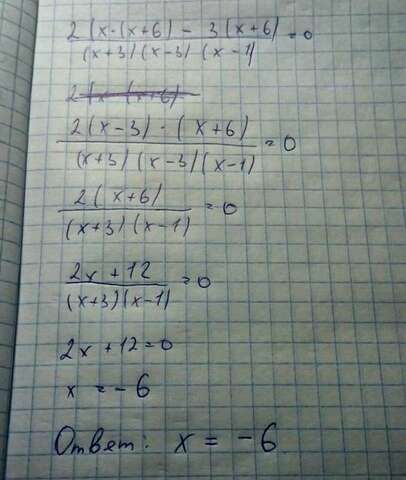 2 (x·(x+6) - 3(x+6) / (x+3)(x-3)(x-1) = 0
2(x-3)·(x+6) / (x+3)(x-3)(x-1) = 0
2(x+6) / (x+3)(x-1) = 0
2x+12 / (x+3)(x-1) = 0
2x+12=0
x = -6
Ответ: x = -6